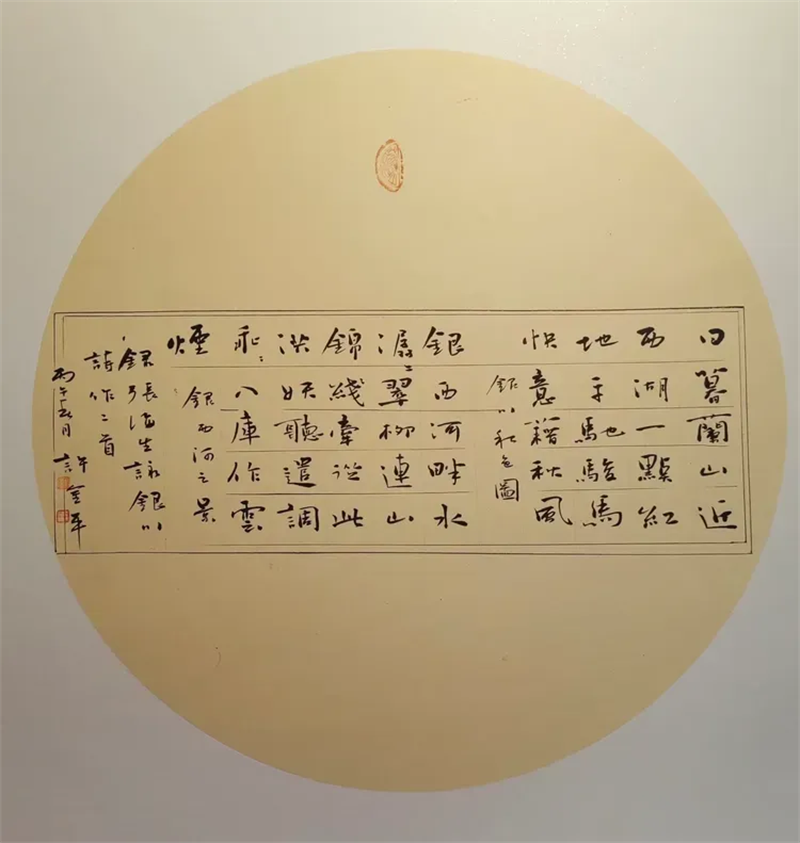 日暮蘭山近
西湖一點紅
地平馳駿馬
快意籍秋風
銀川秋色圖
銀西河畔水
潺〻翠柳連山
錦綫牽從此
洪妖聽遣調
乖〻八庫作雲
煙
銀西河之景
錄張海生詠銀川
詩作二首
丙午月許金平